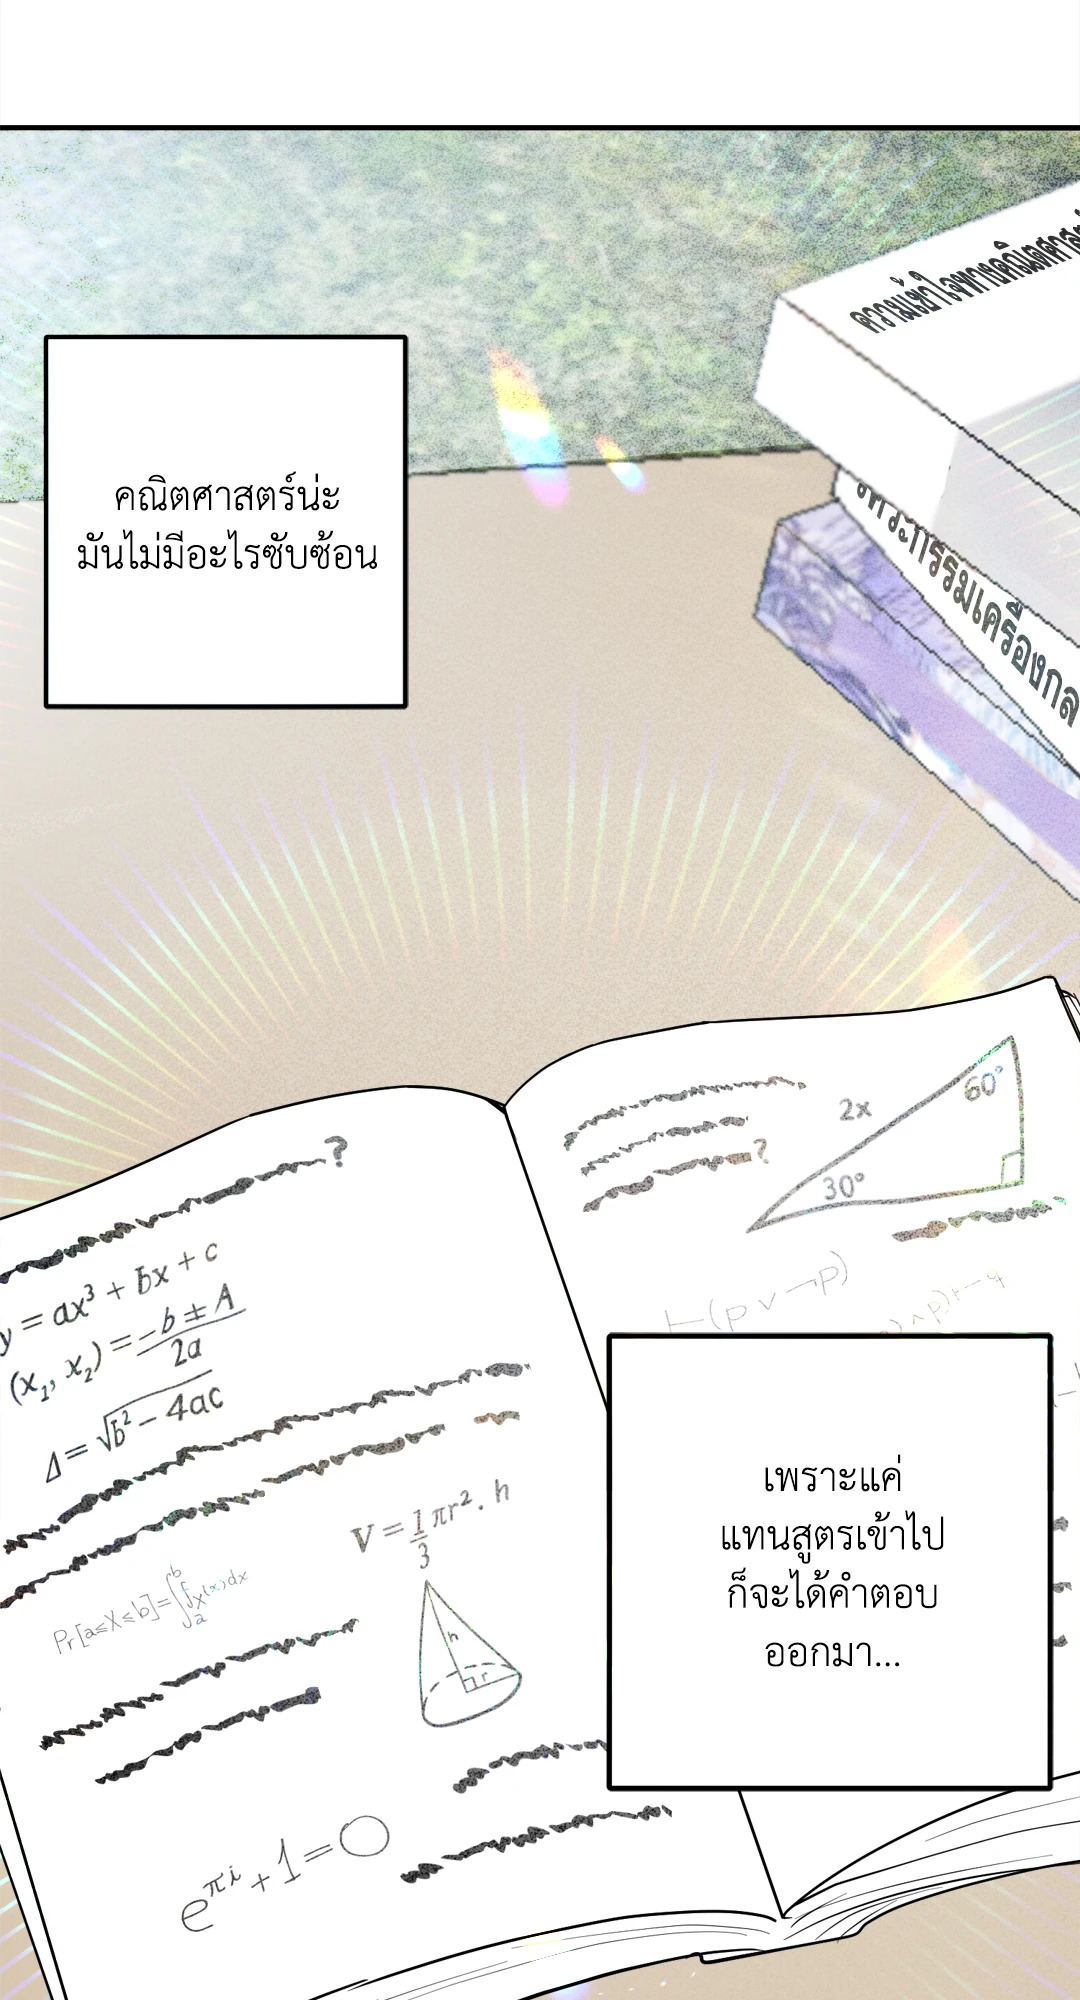 ความเข้าใจทางคณิตศาสตร์
วิศวกรรมเครื่องกล
คณิตศาสตร์น่ะ
มันไม่มีอะไรซับซ้อน
2x
60°
30°
?
?
y = ax³ + bx + c
(x₁, x₂) = -b ± A / 2a
Δ = √b² - 4ac
⊢(p ∨ ¬p)
∧p)r-q
V = 1/3 πr² . h
Pr[a≤X≤b]=∫ₐᵇ fx(x)dx
h
r
เพราะแค่
แทนสูตรเข้าไป
ก็จะได้คำตอบ
ออกมา...
e^πi + 1 = 0